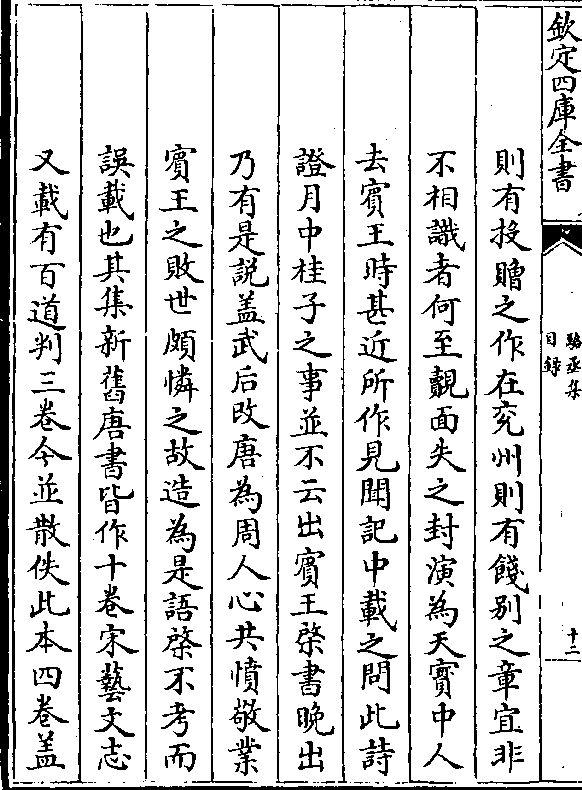 欽定四庫全書
駱丞集
目録
十二
則有投贈之作在兖州則有餞别之章宜非
不相識者何至覿面失之封演為天寳中人
去賓王時甚近所作見聞記中載之問此詩
證月中桂子之事並不云出賓王棨書晚出
乃有是説盖武后改唐為周人心共憤敬業
賓王之敗世頗憐之故造為是語棨不考而
誤載也其集新舊唐書皆作十卷宋藝文志
又載有百道判三卷今並散佚此本四卷盖